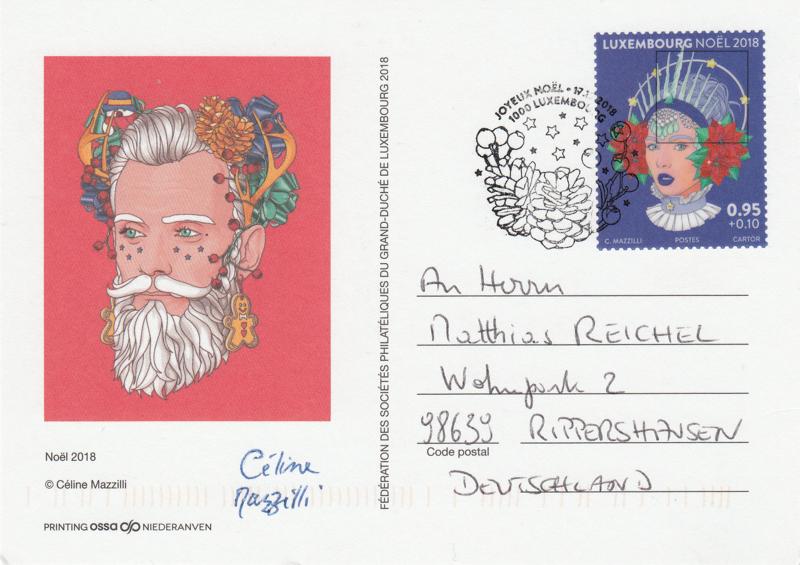 LUXEMBOURG NOËL 2018
0.95
+0.10
C. MAZZILLI POSTES CARTOR
1000 LUXEMBOURG
An Herrn
Matthias REICHEL
Wohnpark 2
98639 RIPPERSHAUSEN
Code postal
DEUTSCHLAND
FÉDÉRATION DES SOCIÉTÉS PHILATÉLIQUES DU GRAND-DUCHÉ DE LUXEMBOURG 2018
Noël 2018
© Céline Mazzilli
Céline
Mazzilli
PRINTING ossa NIEDERANVEN
JOYEUX NOËL
2018